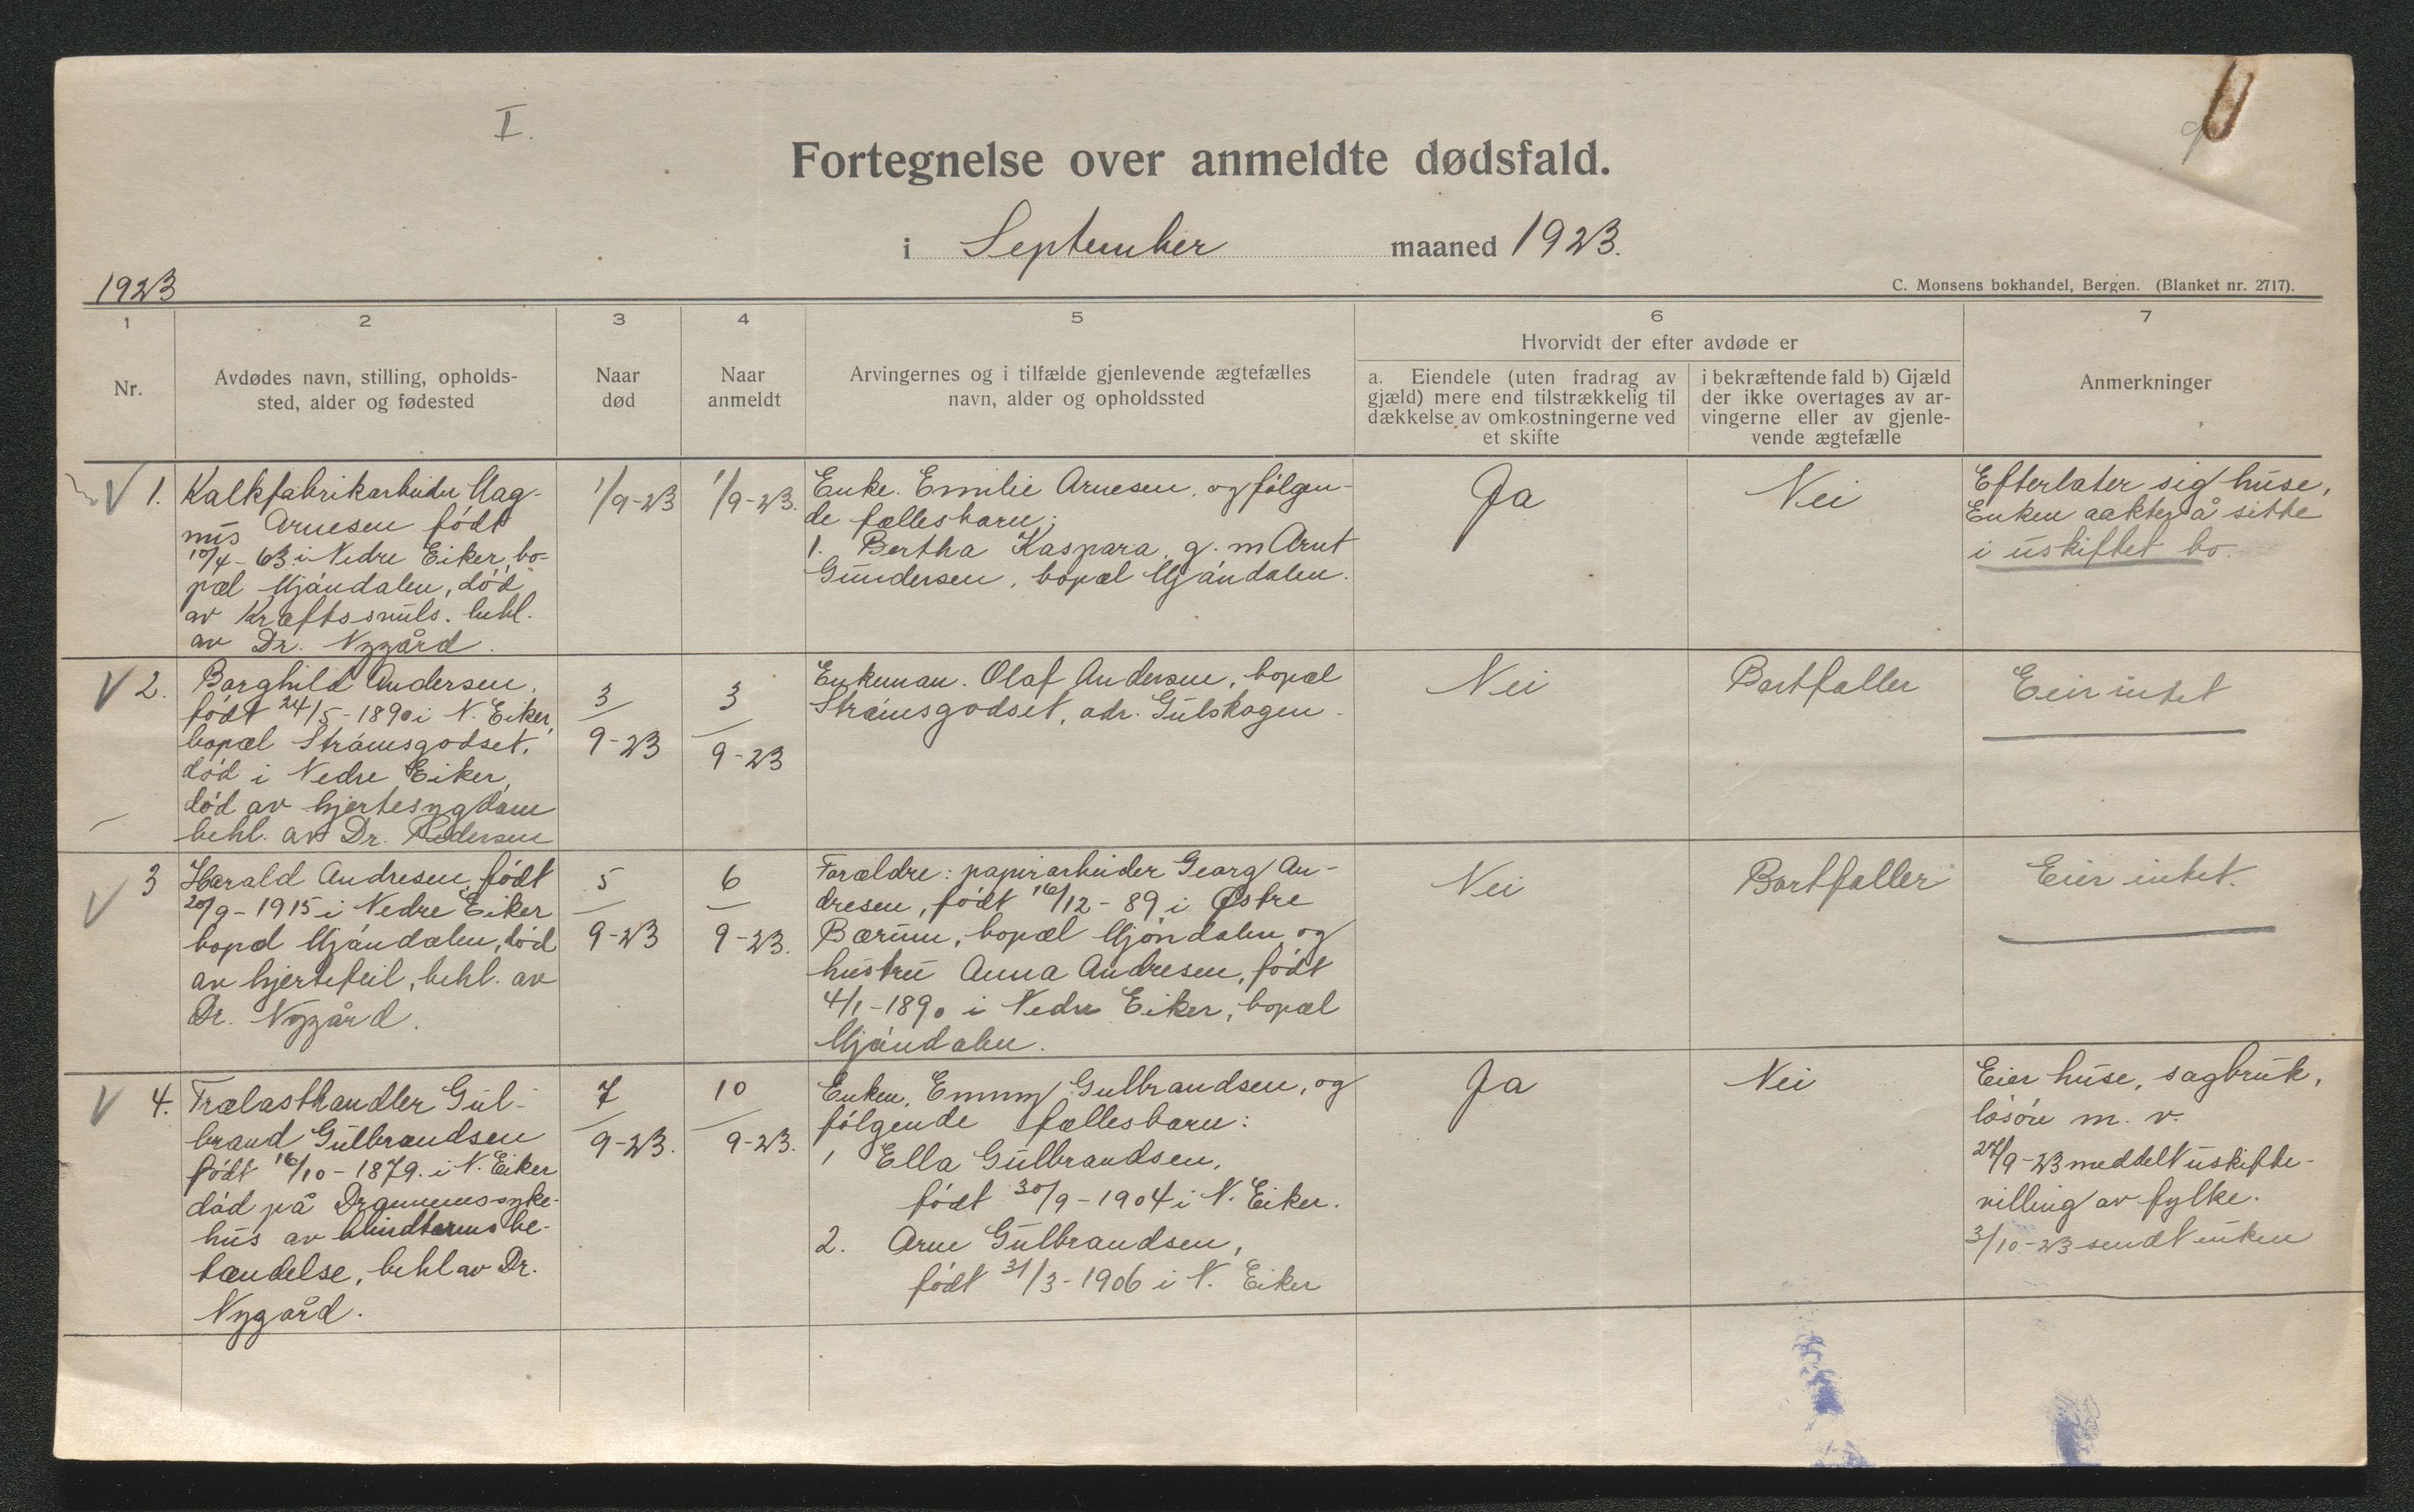 I.
Fortegnelse over anmeldte dødsfald.
i September maaned 1923.
1923
C. Monsens bokhandel, Bergen. (Blanket nr. 2717).
1
2
3
4
5
6
7
Nr.
Avdødes navn, stilling, opholds-
sted, alder og fødested
Naar
død
Naar
anmeldt
Arvingernes og i tilfælde gjenlevende ægtefælles
navn, alder og opholdssted
Hvorvidt der efter avdøde er
a. Eiendele (uten fradrag av
gjæld) mere end tilstrækkelig til
dækkelse av omkostningerne ved
et skifte
i bekræftende fald b) Gjæld
der ikke overtages av ar-
vingerne eller av gjenle-
vende ægtefælle
Anmerkninger
V 1.
Kalkfabrikarbeider Mag-
nus Arnesen født
10/4-63 i Nedre Eiker, bo-
pæl Mjøndalen, død
av Kræftssvuls. behl.
av Dr. Nygård.
1/9-23
1/9-23.
Enke. Emilie Arnesen, og følgen-
de fællesbarn:
1. Bertha Kaspara, g. m Arnt
Gundersen, bopæl Mjøndalen.
Ja
Nei
Efterlater sig huse,
Enken aakter å sitte
i uskiftet bo.
V 2.
Borghild Andersen,
født 24/5-1890 i N. Eiker,
bopæl Strømsgodset,
død i Nedre Eiker,
død av hjertesygdom
behl. av Dr. Pedersen
3/9-23
3/9-23
Enkeman. Olaf Andersen, bopæl
Strømsgodset, adr. Gulskogen.
Nei
Bortfaller
Eeir intet
V 3
Harald Andresen, født
20/9-1915 i Nedre Eiker
bopæl Mjøndalen, død
av hjertefeil, behl. av
Dr. Nygård.
5/9-23
6/9-23.
Forældre: papirarbeider Georg An-
dresen, født 16/12-89 i Østre
Bærum, bopæl Mjøndalen og
hustru Anna Andresen, født
4/1-1890 i Nedre Eiker, bopæl
Mjøndalen.
Nei
Bortfaller
Eeir intet.
V 4.
Trælasthandler Gul-
brand Gulbrandsen
født 16/10-1879. i N. Eiker
død på Drammens syke-
hus av blindtarmsbe-
tændelse, behl av Dr.
Nygård.
7/9-23.
10/9-23.
Enken, Emmy Gulbrandsen, og
følgende fællesbarn:
1 Ella Gulbrandsen,
født 30/9-1904 i N. Eiker.
2. Arne Gulbrandsen,
født 31/3-1906 i N. Eiker
Ja
Nei
Eier huse, sagbruk,
løsøre m. v.
27/9-23 meddelt uskifte-
villing av fylke.
3/10-23 sendt enken